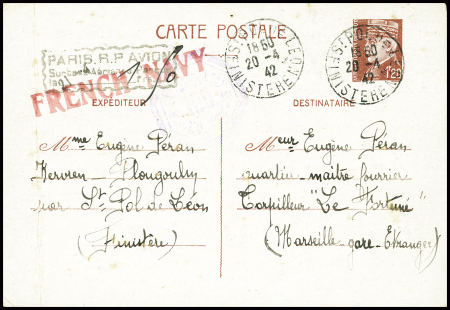 CARTE POSTALE
PARIS.R.P AVION
FRENCH NAVY
ST POL-DE-LEON
18 50
20 - 4
42
FINISTERE
18 50
20 - 4
42
FINISTERE
1,20
EXPÉDITEUR
DESTINATAIRE
Mme Eugène Péran
Kervren Plougoulm
par St Pol de Léon
(Finistère)
Meur Eugène Péran
martin-maître fourrier
Torpilleur "Le Fortuné"
(Marseille-gare-Etranger)